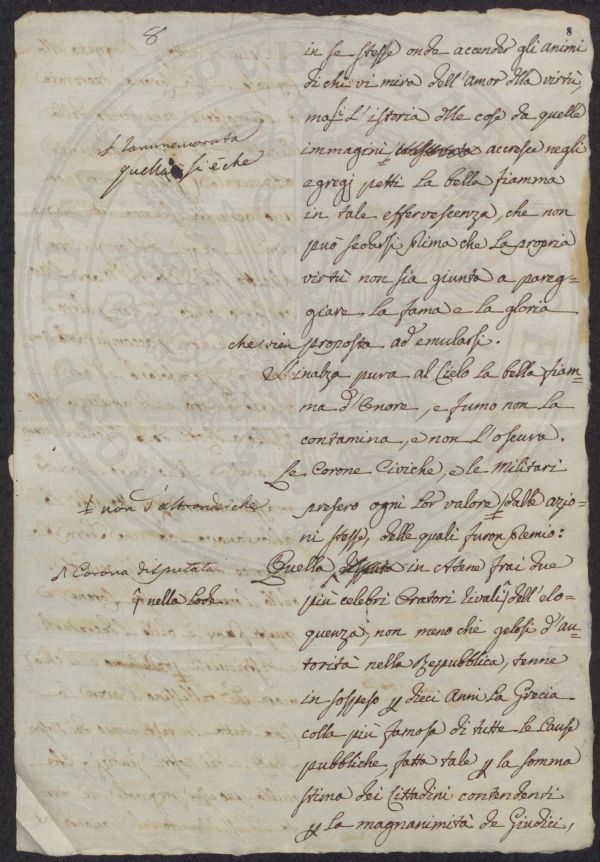 8
8
in se stesse onde accender gli animi
di chi vi mira dell'Amor dlla virtù,
ma si L'istoria dlle cose da quelle
ƚ rammemorata
immagini accresce negli
quella si è che
egregj petti La bella fiamma
in tale effervescenza, che non
può sedarsi prima che La propria
virtù non sia giunta a pareg-
giare La fama e la gloria
che vien proposta ad emularsi.
S'inalza pura al Cielo La bella fiam-
ma d'Onore, e fumo non La
contamina, e non L'oscura.
Le Corone Civiche, e le Militari
ƚ non d'altronde che
presero ogni Lor valore dalle azio-
ni stesse, delle quali furon premio:
Corona disputata
Quella in Atene frai due
nella Lode
più celebri Oratori rivali dell'elo-
quenza, non meno che gelosi d'au-
torità nella Repubblica, tenne
in sospeso ꝑ dieci Anni La Grecia
colla più famosa di tutte le Cause
pubbliche, fatta tale ꝑ la somma
stima dei Cittadini contendenti
ꝑ La magnanimità de Giudici,